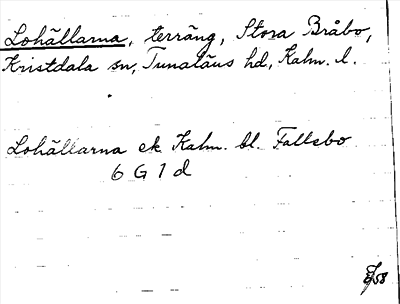 Lohällarna, terräng, Stora Bråbo,
Kristdala sn, Tunaläns hd, Kalm. l.
Lohällarna ek Kalm. bl. Fallebo
6 G 1 d